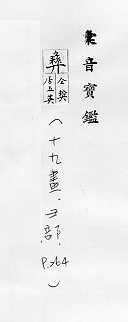 彙音寶鑑
彝
五英
(十九畫,彐部,
P.264)